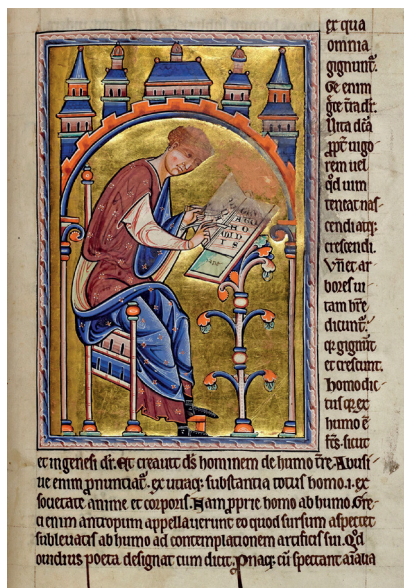 ex qua
omnia
gignunt᷒.
Ge enim
gre tr̄a dr̄.
Uita dc̄a
ꝓpt̄ uigo
rem uel
qd̄ uim
teneat nas
cendi atq;
crescendi.
Vn̄ et ar
bores ui
tam hr̄e
dicunt᷒.
qr gignūt
et crescunt.
homo dic
tus qr ex
humo ē
fc̄s. sicut
et in genesi dr̄. Et creauit ds̄ hominem de humo tr̄e. Abusi
ue enim ꝓnunciat᷒. ex utraq; substantia totus homo .i. ex
societate anime et corporis. Nam ꝓprie homo ab humo. Gre
ci enim antropum appellauerunt eo quod sursum aspectet
subleuatus ab humo ad contemplationem artificis sui. Qd̄
ouidius poeta designat cum dicit. Pnaq; cū spectant aīalia